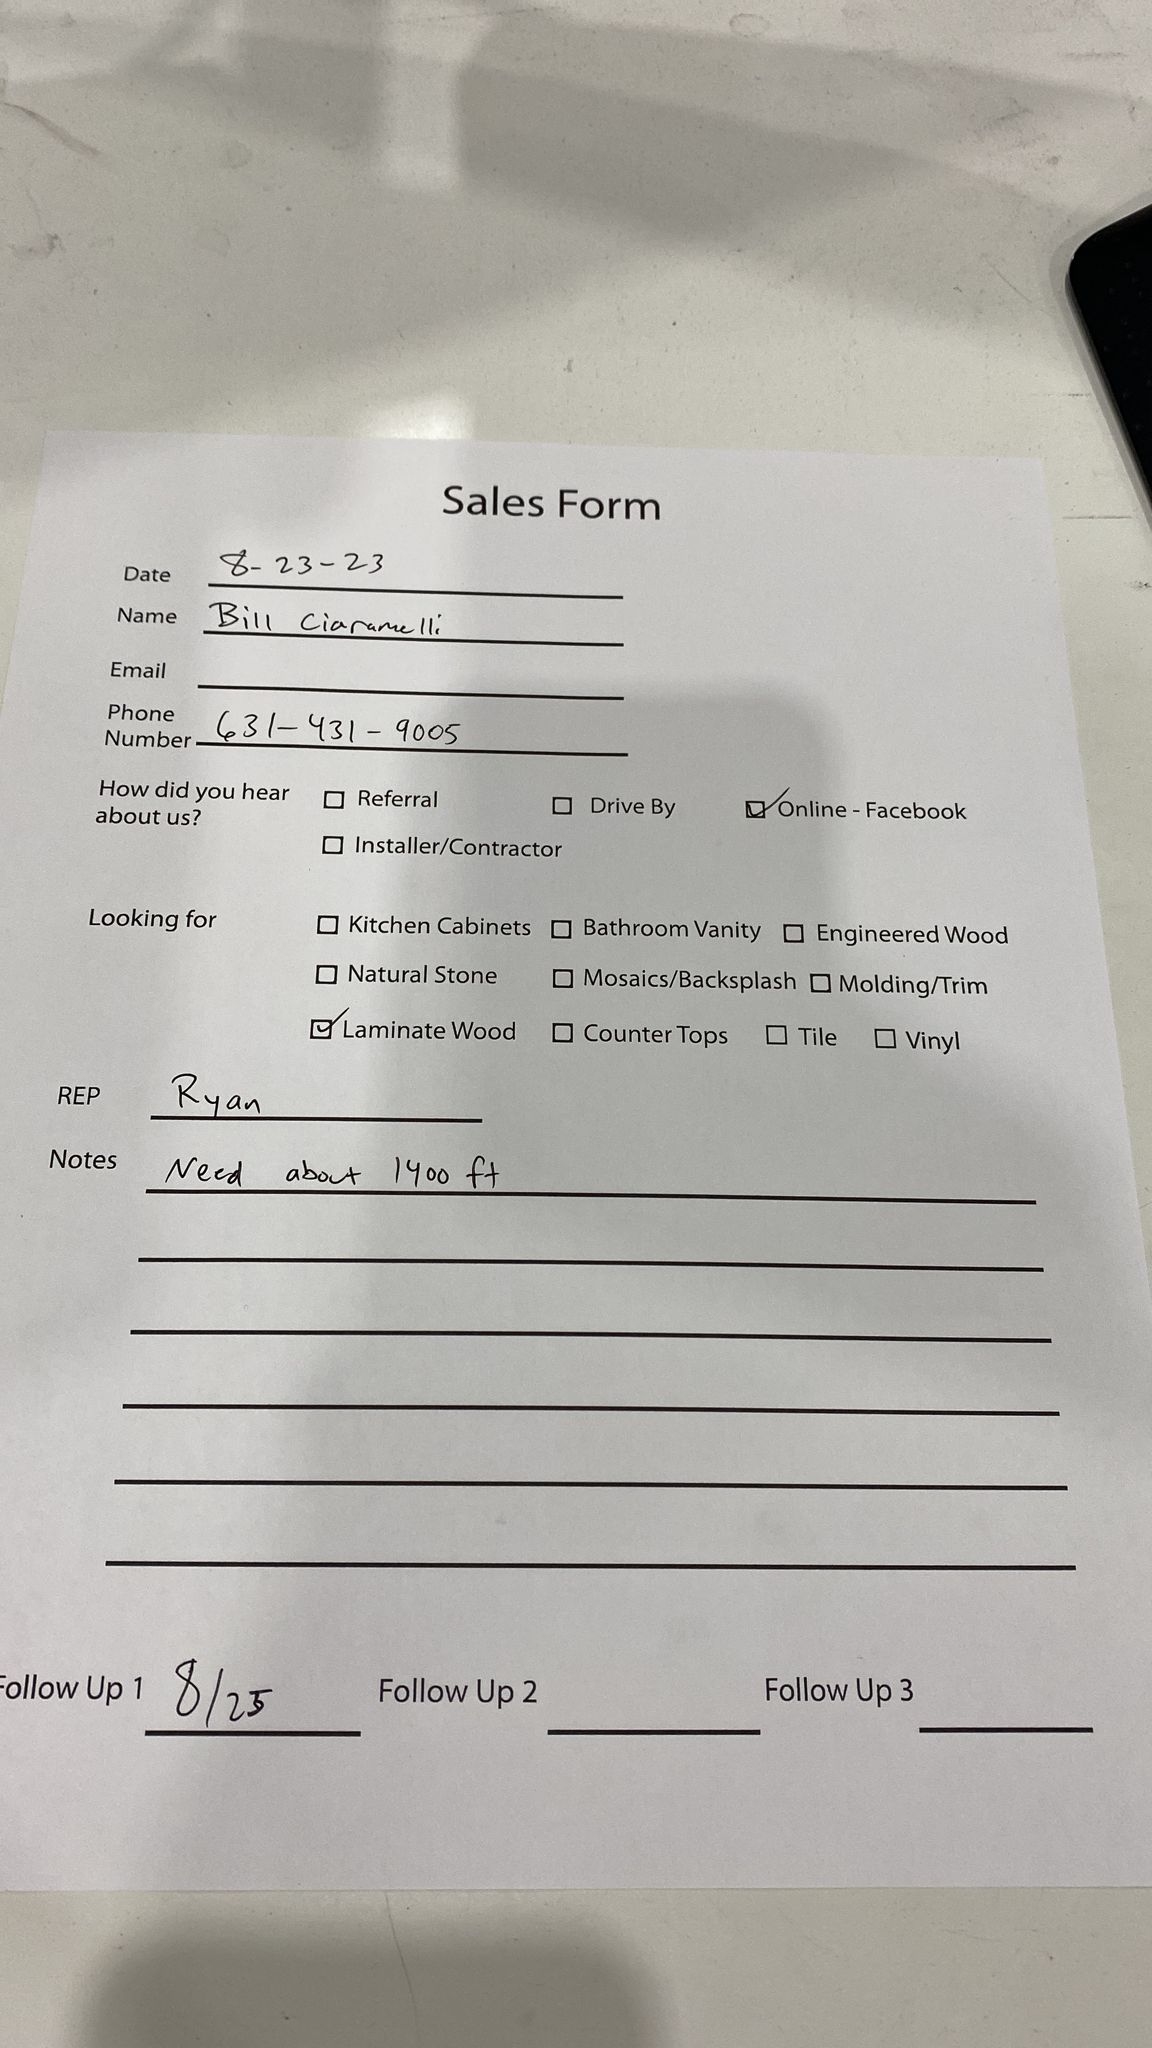 Sales Form
Date 8-23-23
Name Bill Ciaramelli
Email
Phone
Number 631-431-9005
How did you hear ☐ Referral ☐ Drive By ☑ Online - Facebook
about us? ☐ Installer/Contractor
Looking for ☐ Kitchen Cabinets ☐ Bathroom Vanity ☐ Engineered Wood
☐ Natural Stone ☐ Mosaics/Backsplash ☐ Molding/Trim
☑ Laminate Wood ☐ Counter Tops ☐ Tile ☐ Vinyl
REP Ryan
Notes Need about 1400 ft
Follow Up 1 8/25 Follow Up 2 Follow Up 3